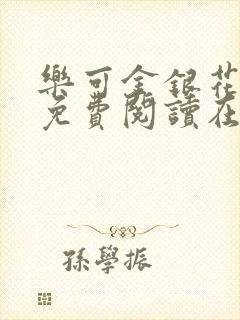 樂可金銀花
免費閱讀在
孫學振